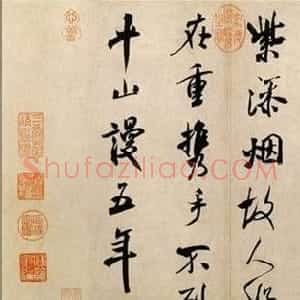 紫深烟故人縱
在重携手不到
平山謾五年
Shufaziliao.COM